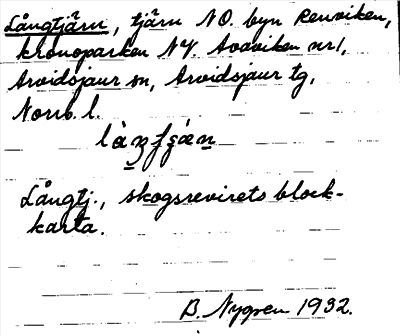 Långtjärn, tjärn NO. byn Renviken,
kronoparken NV. Avaviken nr 1,
Arvidsjaur sn, Arvidsjaur tg,
Norrb. l.
Långtj., skogsrevirets block-
karta.
B. Nygren 1932.